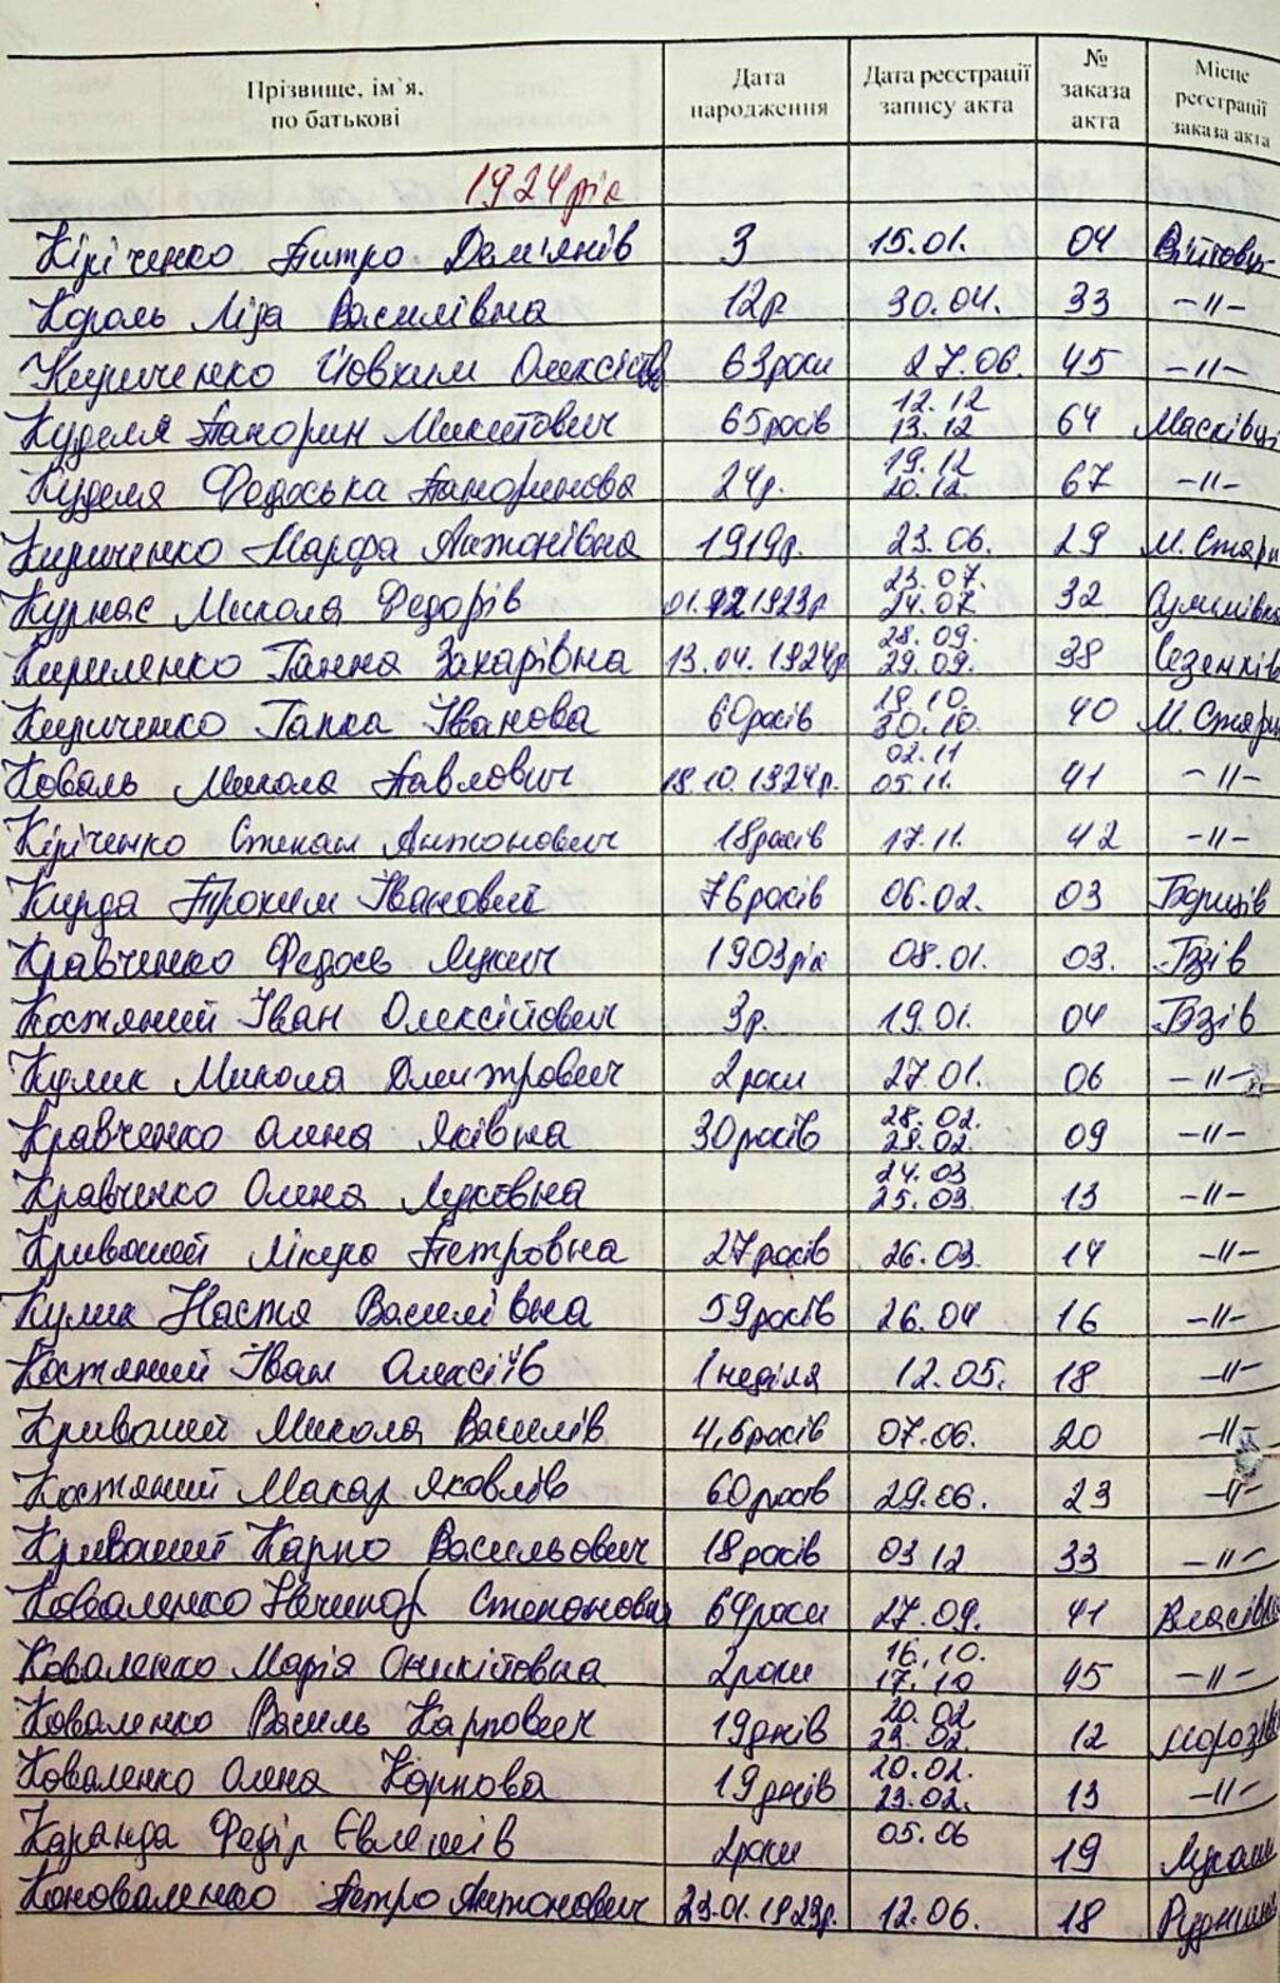 Прізвище, ім`я, по батькові Дата народження Дата реєстрації запису акта № заказа акта Місце реєстрації заказа акта
1924 рік
Кіріченко Питро Дем'янів 3 15.01. 04 Війтовц-
Король Ліза Василівна 12р 30.04. 33 -||-
Кириченко Йовхим Олексієв 63роки 27.06. 45 -||-
Куделя Панорин Микитович 65років 12.12 13.12 64 Масківці
Куделя Федоська Паноринова 24р. 19.12 20.12. 67 -||-
Кириченко Марфа Антонівна 1919р. 23.06. 29 М. Стари
Курнас Микола Федорів 01.12 1923р 23.07. 24.07 32 Сулимівка
Кириленко Ганна Захарівна 13.04.1924р 28.09. 29.09. 38 Сезенків
Кириченко Гапка Іванова 60років 18.10. 30.10. 40 М. Стари
Коваль Микола Павлович 18.10.1924р. 02.11 05.11. 41 -||-
Кіріченко Степан Антонович 18років 17.11. 42 -||-
Кирда Трохим Іванович 76років 06.02. 03 Борщів
Кравченко Федось Лукич 1903рік 08.01. 03. Бзів
Костяний Іван Олексійович 3р. 19.01. 04 Бзів
Кулик Микола Дмитрович 2роки 27.01. 06 -||-
Кравченко Олена Яківна 30років 28.02. 29.02. 09 -||-
Кравченко Олена Луківна 24.03 25.03. 13 -||-
Кривошей Лікера Петровна 27років 26.03. 14 -||-
Кулик Настя Василівна 59років 26.04 16 -||-
Костяний Іван Олексіїв 1неділя 12.05. 18 -||-
Кривоший Микола Василів 4,6років 07.06. 20 -||-
Костяний Макар Яковлів 60років 29.06. 23 -||-
Кривоший Карпо Васильович 18років 03.12 33 -||-
Коваленко Нечипор Степанович 64роки 27.09. 41 Власівка
Коваленко Марія Оникійовна 2роки 16.10. 17.10 45 -||-
Коваленко Василь Карпович 19днів 20.02 23.02. 12 Морозів
Коваленко Олена Карпова 19днів 20.02. 23.02. 13 -||-
Каранда Федір Євлемпів 2роки 05.06 19 Лукаш
Коноваленко Петро Антонович 23.01.1923р. 12.06. 18 Рудницьк